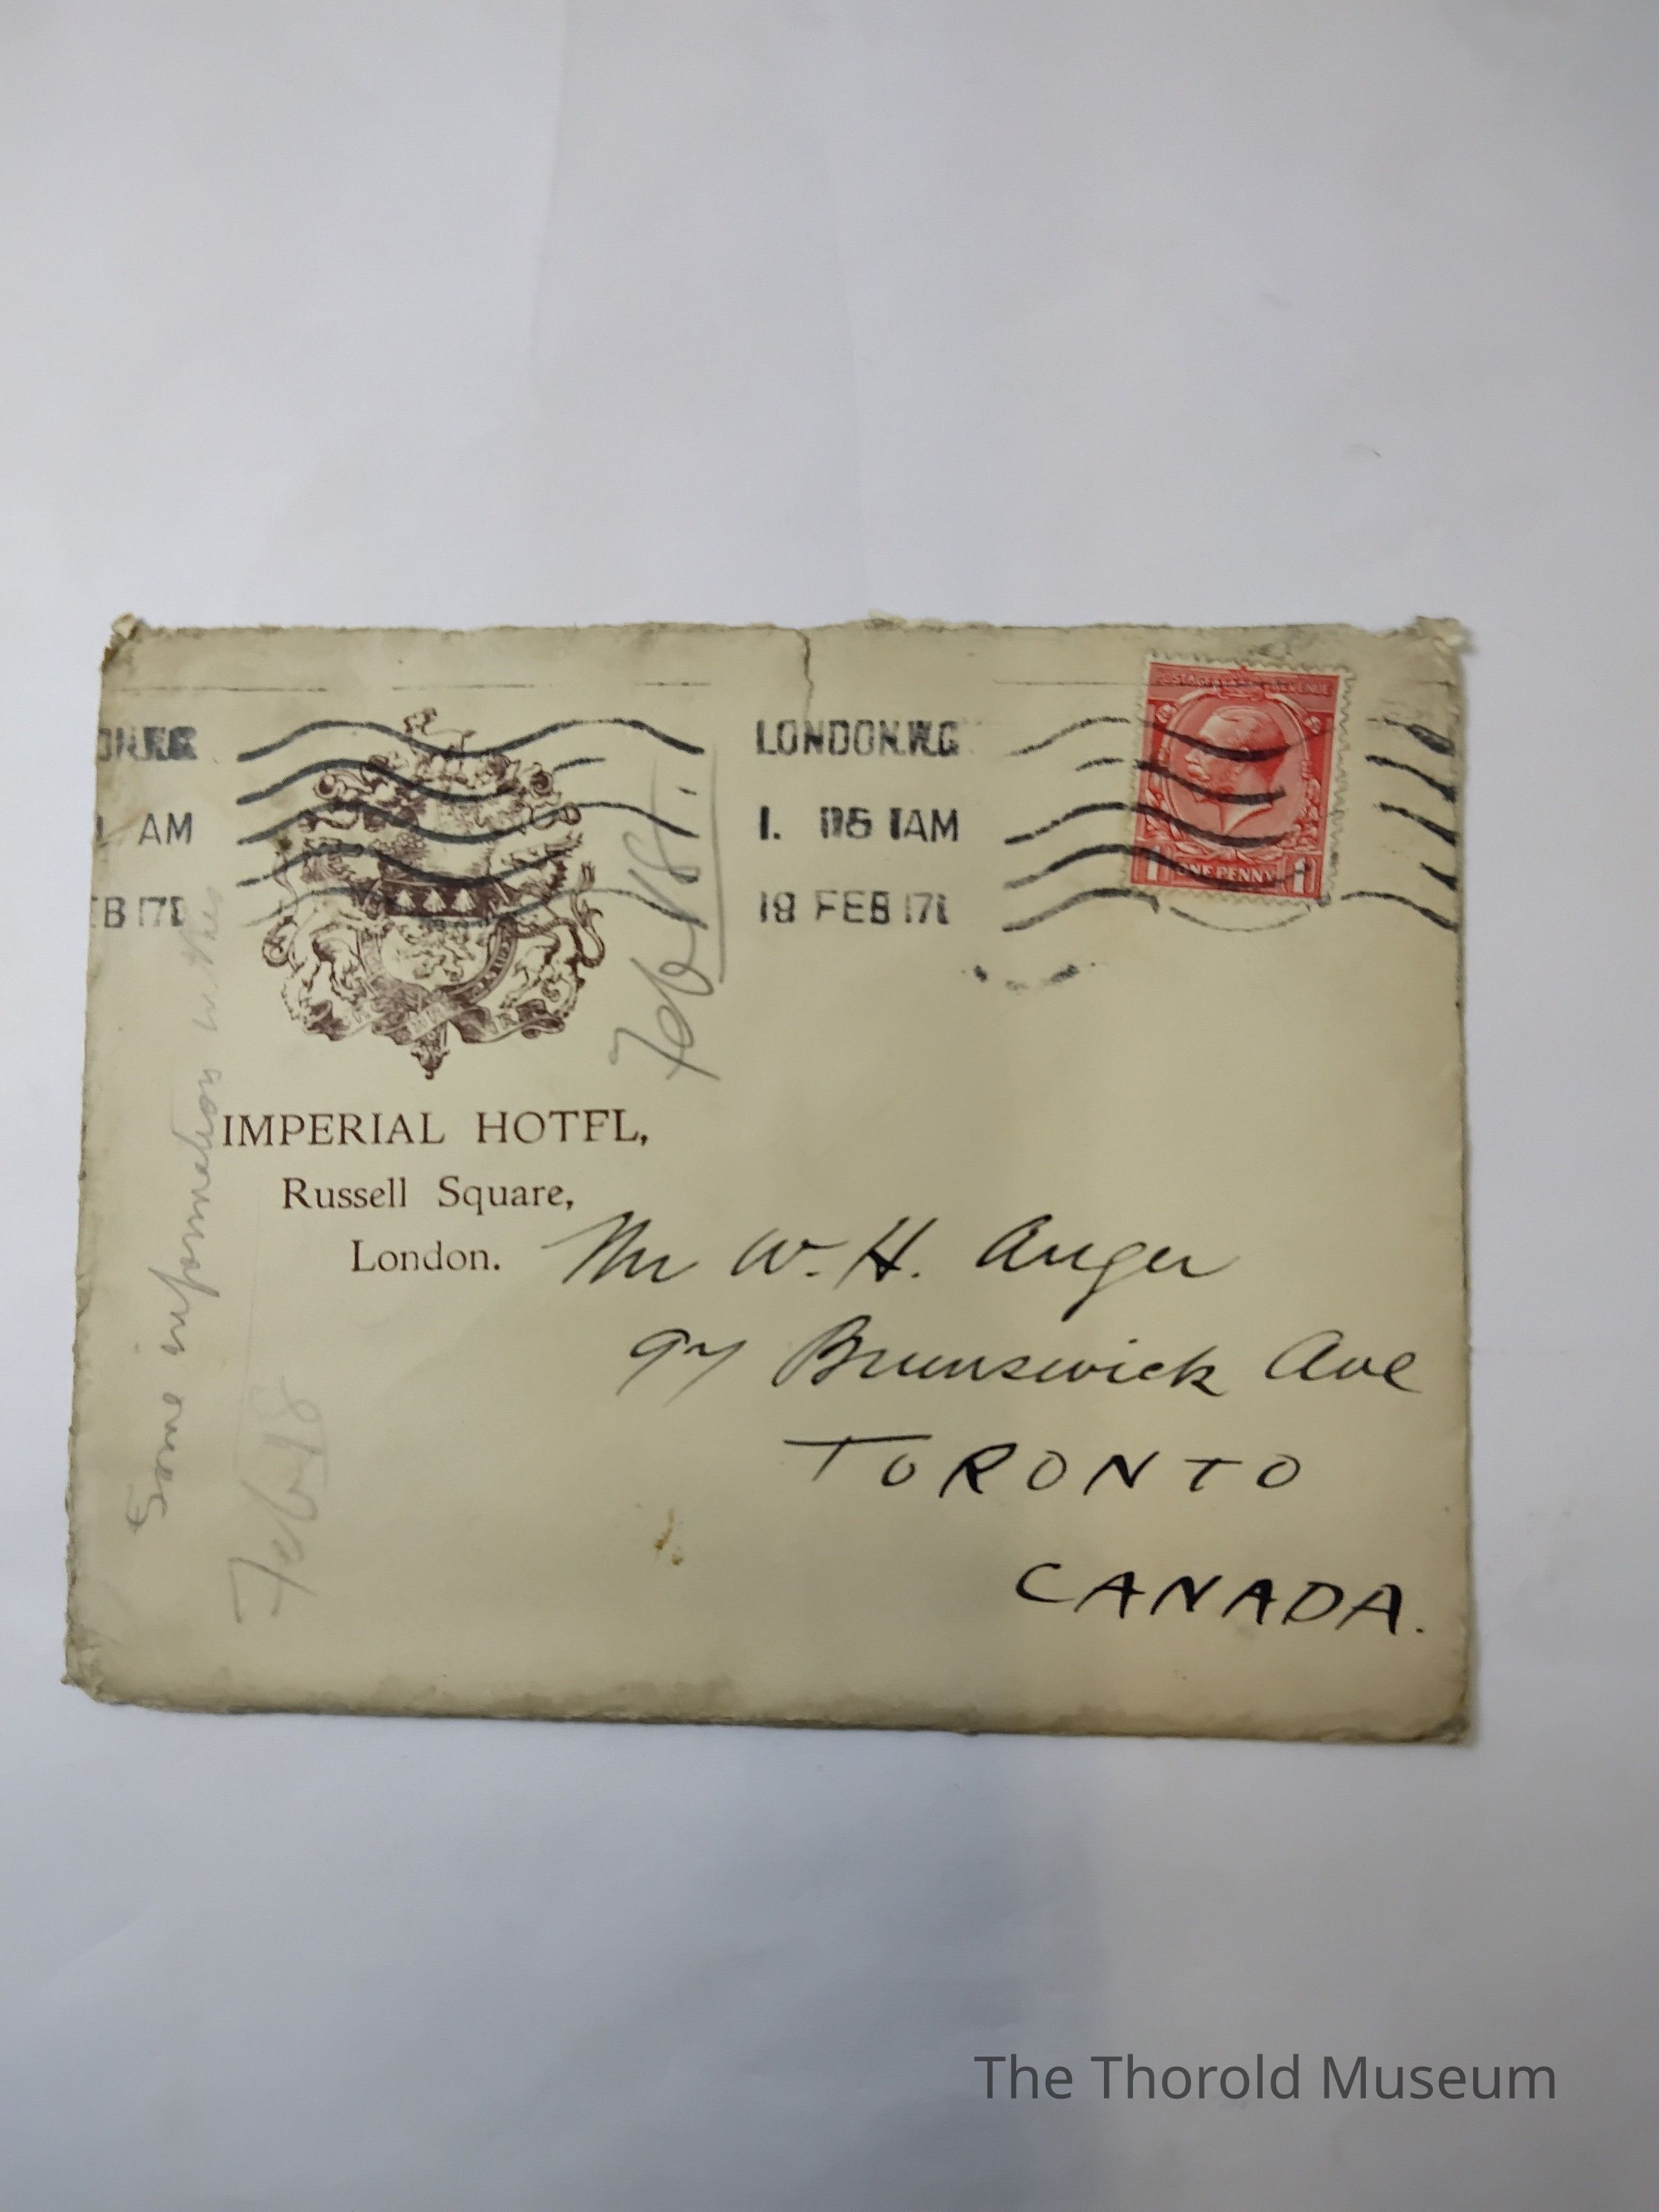 LONDON.W.C
1. 115 AM
19 FEB 17
AM
POSTAGE REVENUE
1 ONE PENNY 1
Feb 18.
IMPERIAL HOTEL,
Russell Square,
London.
Mr W. H. Anger
97 Brunswick Ave
TORONTO
CANADA.
Some information in this
Feb 18
The Thorold Museum